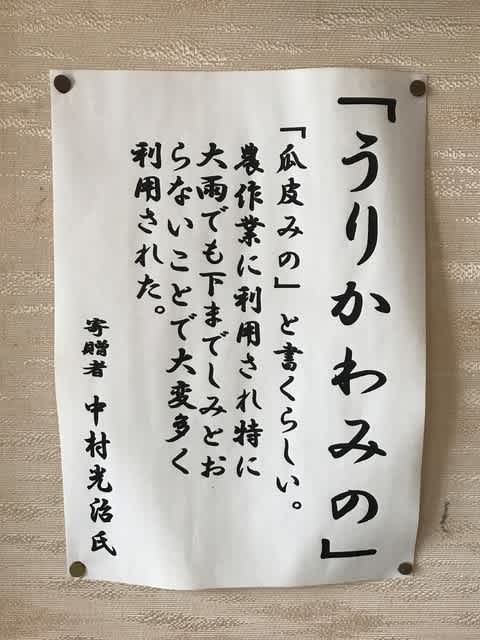 「うりかわみの」
「瓜皮みの」と書くらしい。
農作業に利用され特に
大雨でも下までしみとお
らないことで大変多く
利用された。
寄贈者 中村光治氏